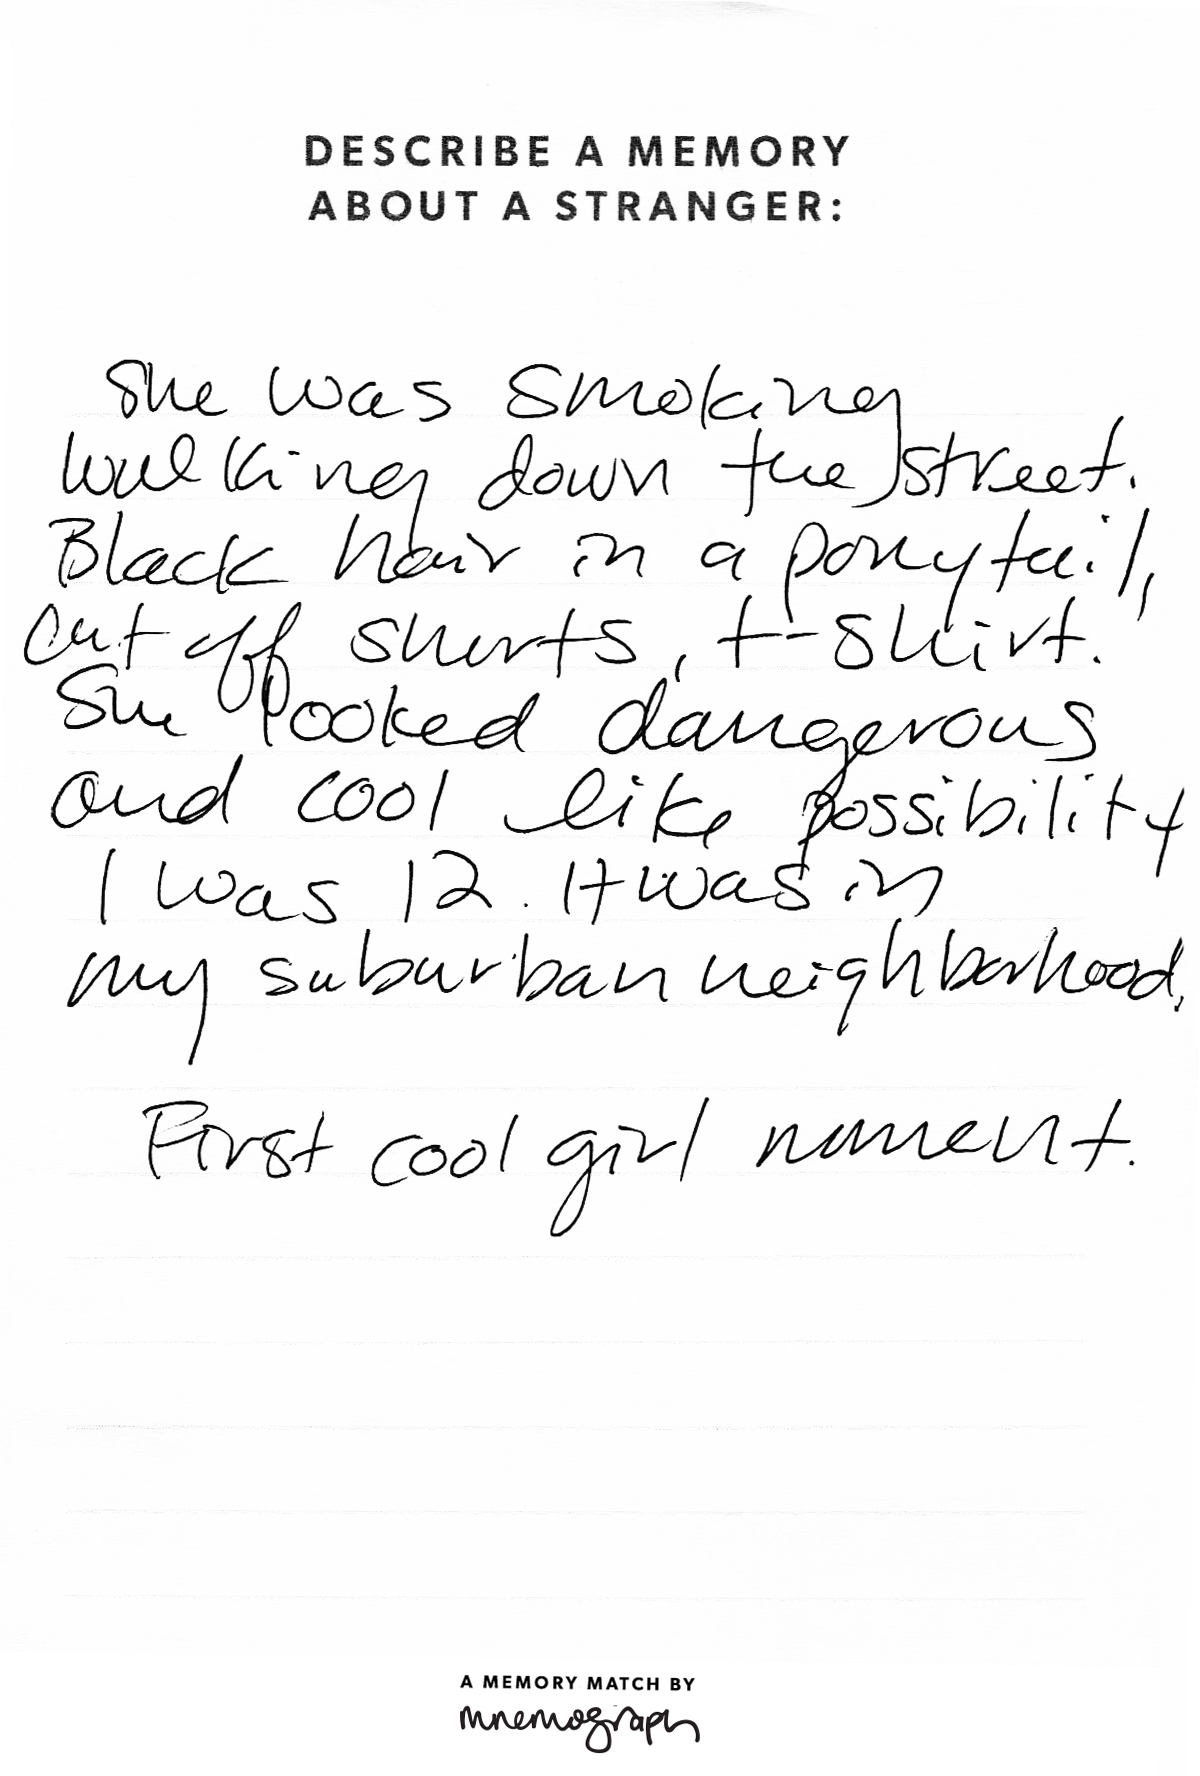 DESCRIBE A MEMORY
ABOUT A STRANGER:
She was smoking
walking down the street.
Black hair in a ponytail,
cut off shorts, t-shirt.
She looked dangerous
and cool like possibility
I was 12. It was in
my suburban neighborhood.
First cool girl moment.
A MEMORY MATCH BY
mnemograph